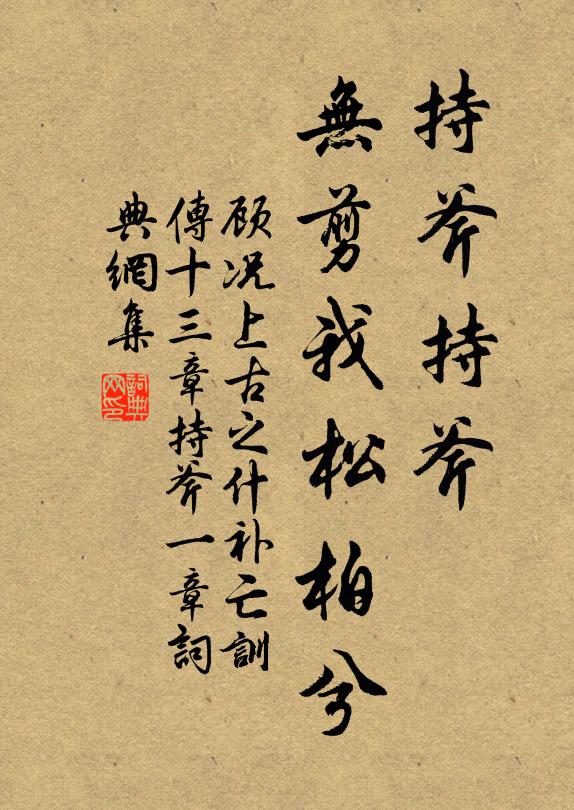 持斧持斧
無剪我松柏兮
顾况上古之什补亡訓
傳十三章持斧一章詞
典網集
詞典網印